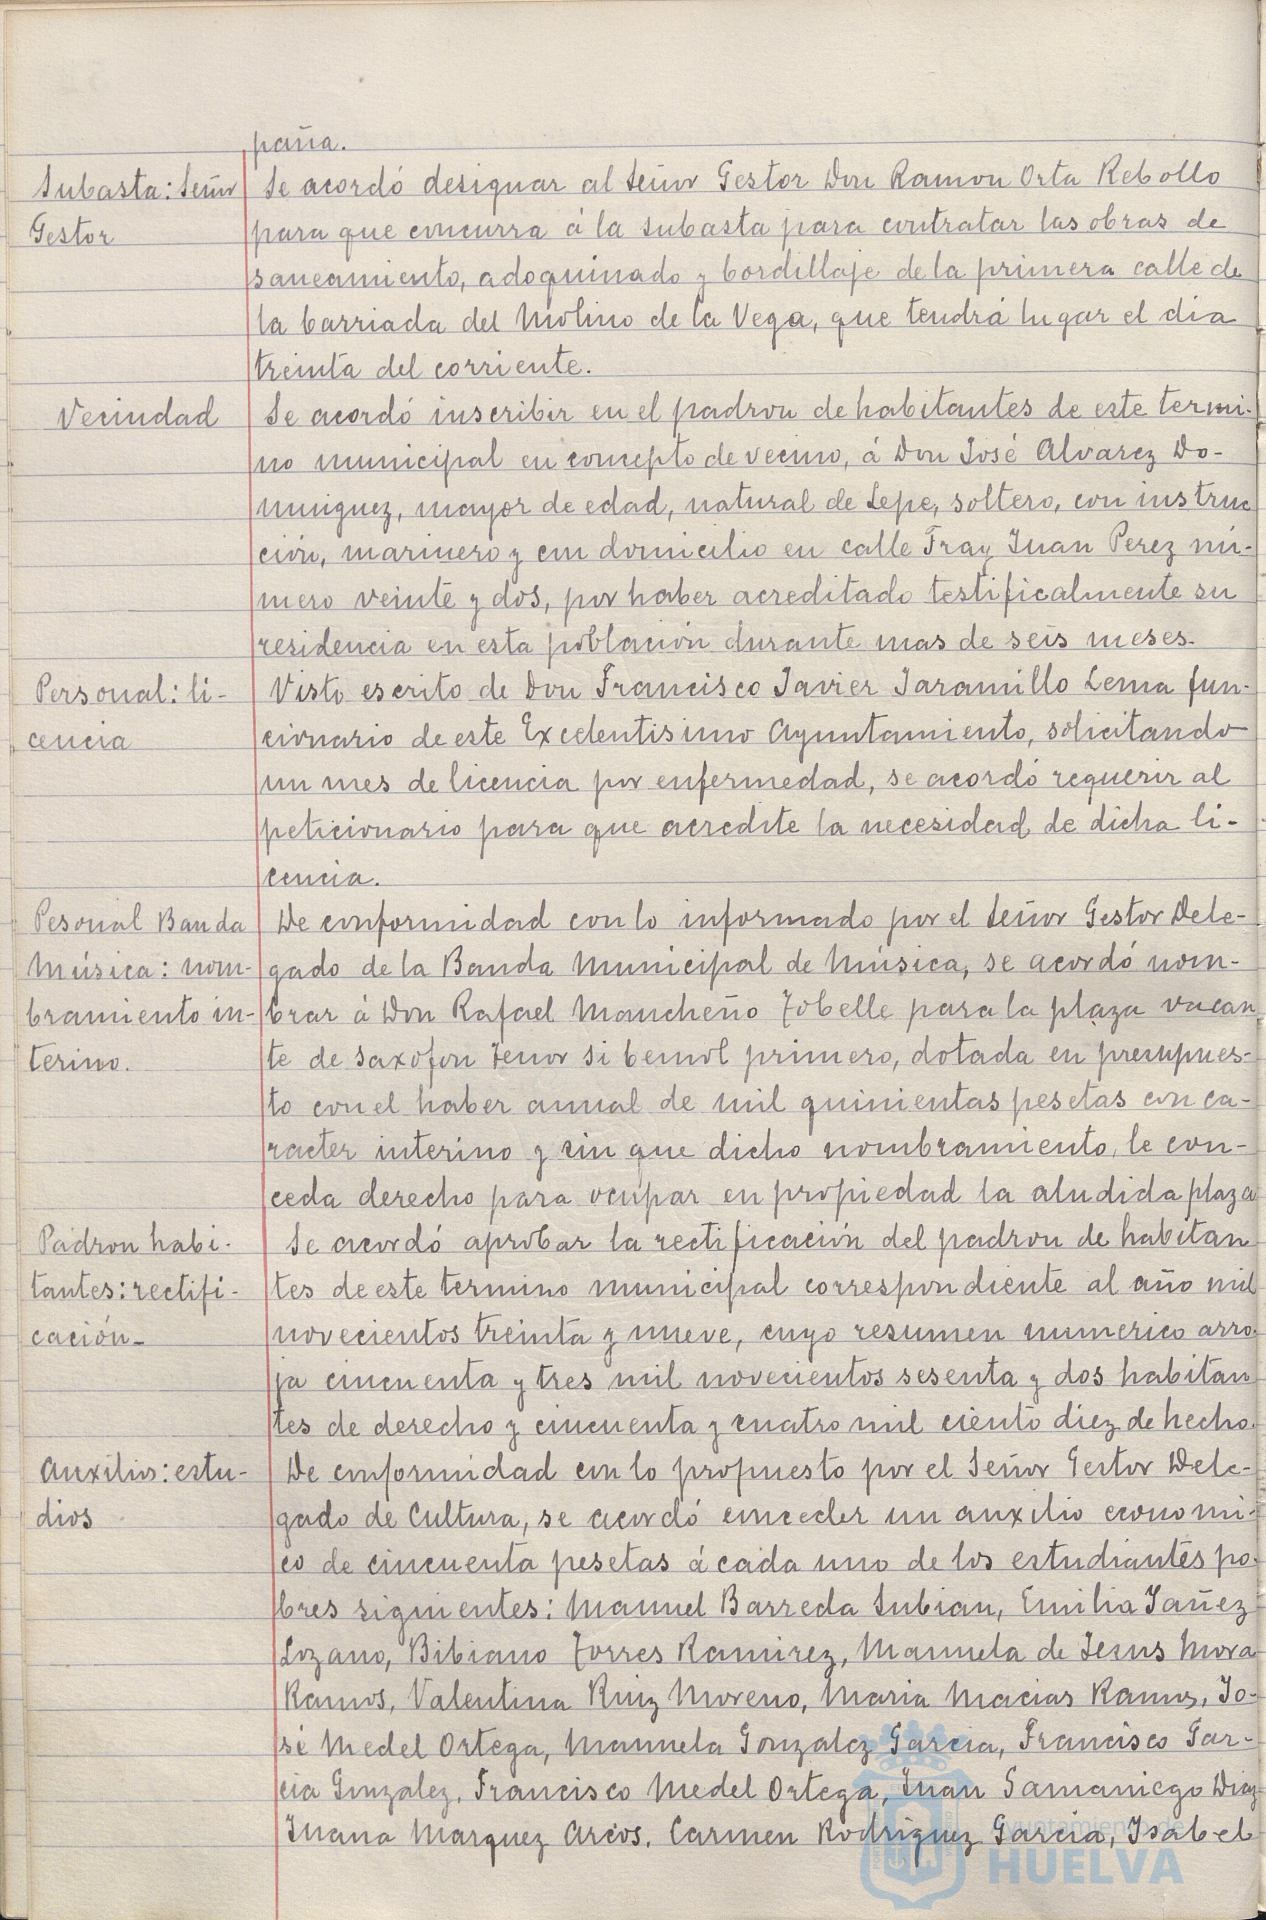 paña.
Subasta: Señor
Gestor
Se acordó designar al Señor Gestor Don Ramon Orta Rebollo
para que concurra á la subasta para contratar las obras de
saneamiento, adoquinado y bordillaje de la primera calle de
la barriada del Molino de la Vega, que tendrá lugar el dia
treinta del corriente.
Vecindad
Se acordó inscribir en el padron de habitantes de este termi-
no municipal en concepto de vecino, á Don José Alvarez Do-
minguez, mayor de edad, natural de Lepe, soltero, con instruc
ción, marinero y con domicilio en calle Fray Juan Perez nú-
mero veinte y dos, por haber acreditado testificalmente su
residencia en esta población durante mas de seis meses.
Personal: li-
cencia
Visto escrito de Don Francisco Javier Jaramillo Lema fun-
cionario de este Excelentisimo Ayuntamiento, solicitando
un mes de licencia por enfermedad, se acordó requerir al
peticionario para que acredite la necesidad de dicha li-
cencia.
Pesonal Banda
Música: nom-
bramiento in-
terino.
De conformidad con lo informado por el Señor Gestor Dele-
gado de la Banda Municipal de Música, se acordó nom-
brar á Don Rafael Mancheño Tobelle para la plaza vacan
te de saxofon tenor si bemol primero, dotada en presupues-
to con el haber anual de mil quinientas pesetas con ca-
racter interino y sin que dicho nombramiento, le con-
ceda derecho para ocupar en propiedad la aludida plaza
Padron habi-
tantes: rectifi-
cación-
Se acordó aprobar la rectificación del padron de habitan
tes de este termino municipal correspondiente al año mil
novecientos treinta y nueve, cuyo resumen numerico arro-
ja cincuenta y tres mil novecientos sesenta y dos habitan
tes de derecho y cincuenta y cuatro mil ciento diez de hecho.
Auxilios: estu-
dios
De conformidad con lo propuesto por el Señor Gestor Dele-
gado de Cultura, se acordó conceder un auxilio economi-
co de cincuenta pesetas á cada uno de los estudiantes po-
bres siguientes: Manuel Barreda Subian, Emilia Yañez
Lozano, Bibiano Torres Ramirez, Manuela de Jesus Mora
Ramos, Valentina Ruiz Moreno, Maria Macias Ramos, Jo-
sé Medel Ortega, Manuela Gonzalez Garcia, Francisco Gar-
cia Gonzalez, Francisco Medel Ortega, Juan Samaniego Diaz
Juana Marquez Arcos, Carmen Rodriguez Garcia, Isabel
Ayuntamiento de
HUELVA